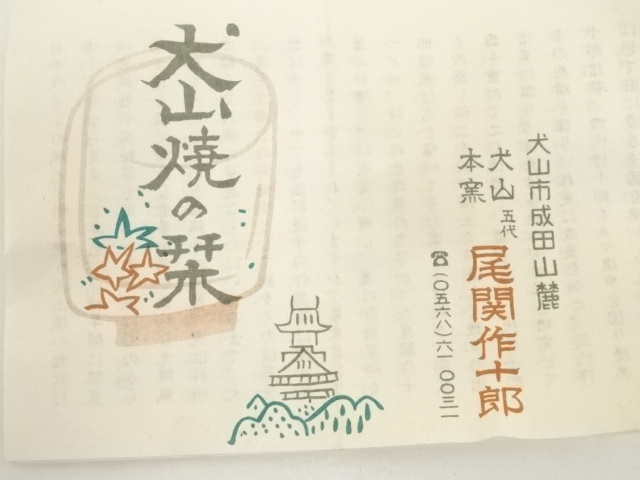 犬山焼の栞
犬山市成田山麓
犬山
本窯
五代
尾関作十郎
☎(〇五六八)六一〇〇三一